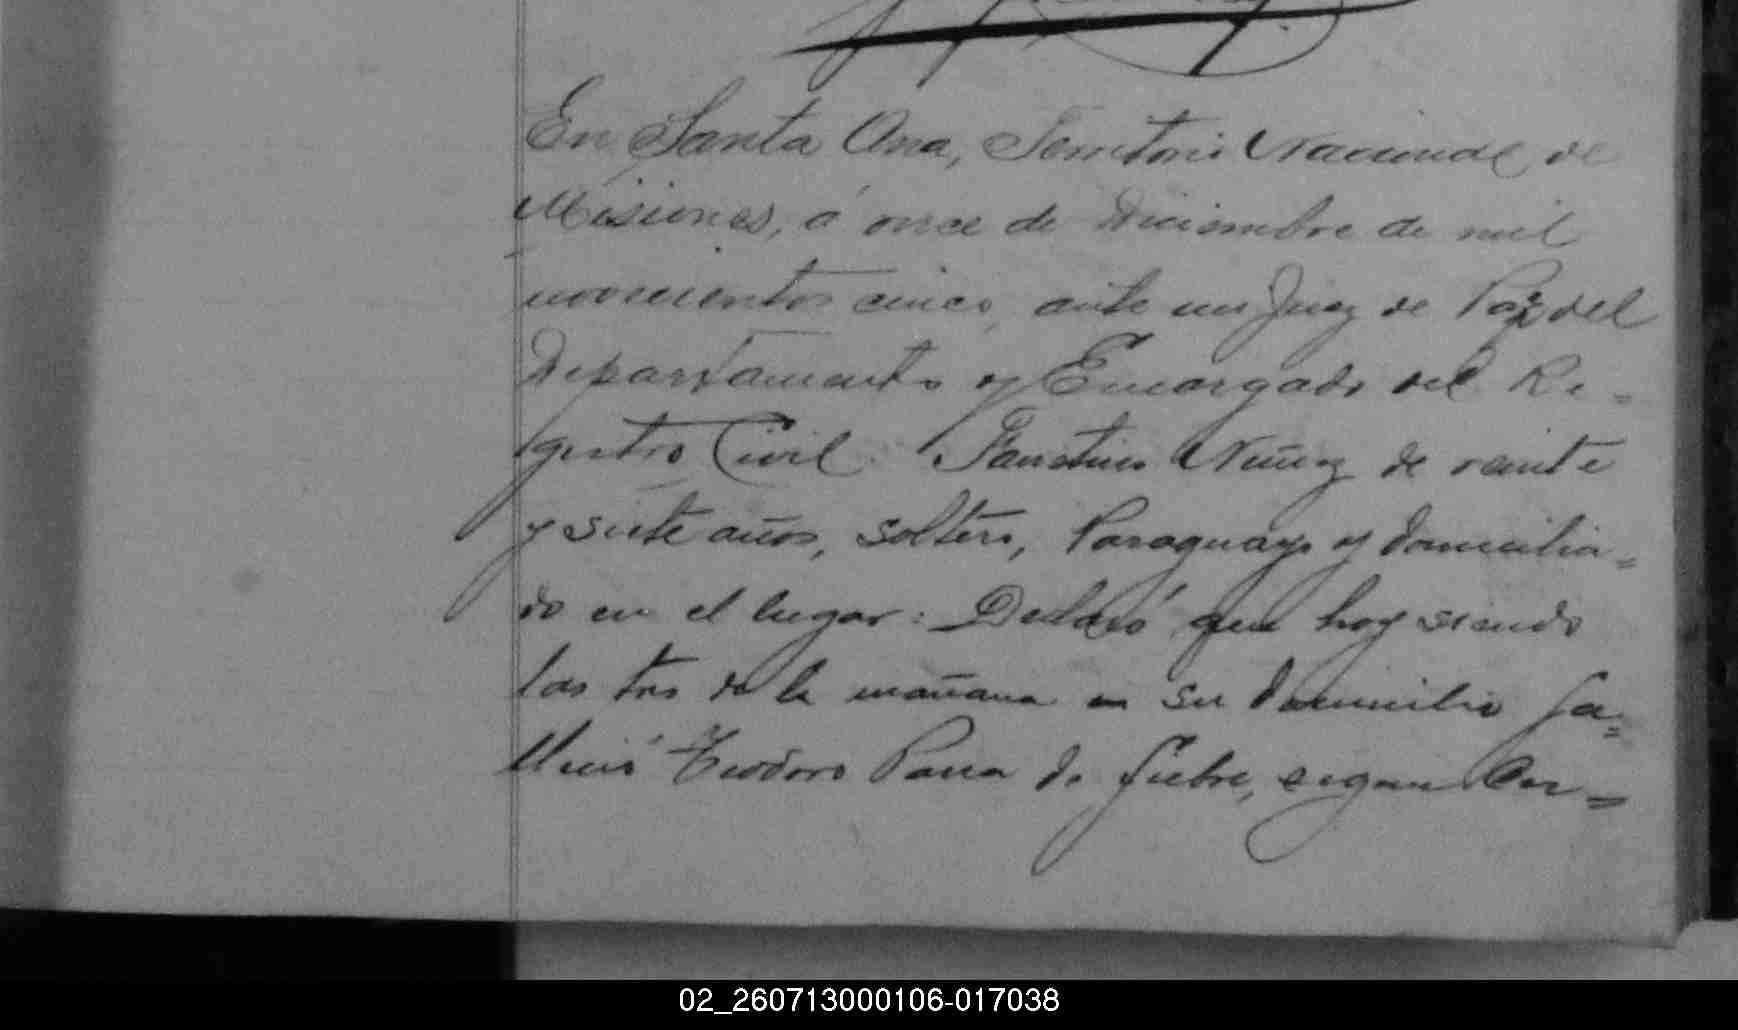 En Santa Ana, Territorio Nacional de
Misiones, á once de Diciembre de mil
novecientos cinco, ante mi Juez de Paz del
Departamento y Encargado del Re=
gistro Civil. Faustino Nuñez de veinte
y siete años, soltero, Paraguayo y domicilia=
do en el lugar: Declaró que hoy siendo
las tres de la mañana en su domicilio fa=
lleció Teodoro Parra de fiebre, segun Cer=
02_260713000106-017038